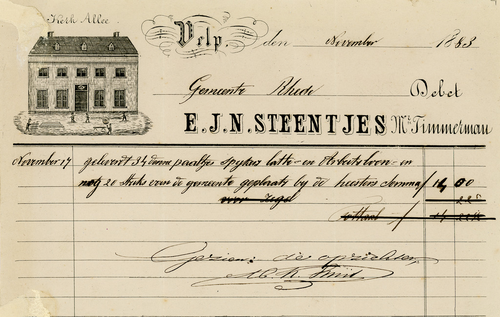 Kerk Allee
Velp, den November 1883
Gemeente Rhede Debet
E. J. N. STEENTJES Mr Timmerman
November 17 gelevert 34 dennepaaltjes spijkers latte - en Arbeitsloon - en
nog 20 stuks voor de gemeente geplaats bij de heesters somma / 14, 00
voor Zegel
Totaal / 14
Gezien: de opzichter,